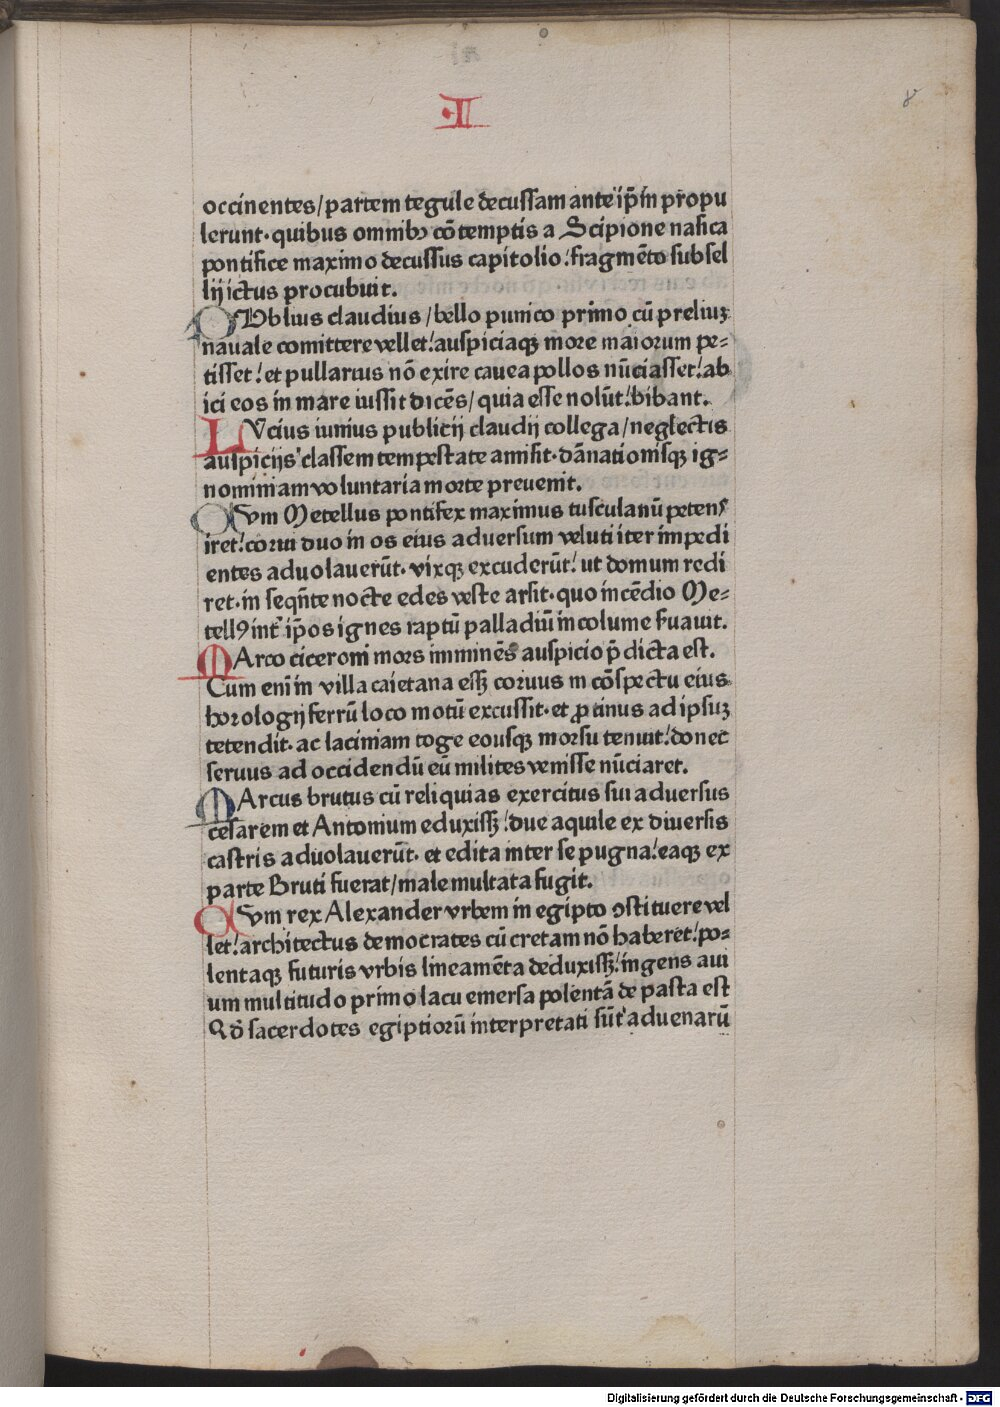 ·II
8
occinentes/partem tegule decussam ante ip̄m propu
lerunt·quibus omnibꝫ cōtemptis a Scipione nasica
pontifice maximo decussus capitolio:fragmēto subsel
lij ictus procubuit.
PVblius claudius/bello punico primo cū preliuꝫ
nauale comittere vellet:auspiciaqꝫ more maiorum pe=
tisset:et pullarius nō exire cauea pollos nūciasset:ab
ici eos in mare iussit dicēs/quia esse nolūt:bibant.
LVcius iunius publicij claudij collega/neglectis
auspicijs classem tempestate amisit·dānationisqꝫ ig=
nominiam voluntaria morte preuenit.
CVm Metellus pontifex maximus tusculanū petens
iret:corui duo in os eius aduersum veluti iter impedi
entes aduolauerūt·vixqꝫ excuderūt:ut domum redi
ret·in seqn̄te nocte edes veste arsit·quo incēdio Me=
tellꝰ int̄ ip̄os ignes raptū palladiū incolume ẜuauit.
MArco ciceroni mors imminēs auspicio p̄dicta est.
Cum enī in villa caietana essꝫ coruus in cōspectu eius
horologij ferrū loco motū excussit·et ꝓtinus ad ipsuꝫ
tetendit·ac laciniam toge eousqꝫ morsu tenuit:donec
seruus ad occidendū eū milites venisse nūciaret.
MArcus brutus cū reliquias exercitus sui aduersus
cesarem et Antonium eduxissꝫ:due aquile ex diuersis
castris aduolauerūt·et edita inter se pugna:eaqꝫ ex
parte Bruti fuerat/male multata fugit.
CVm rex Alexander vrbem in egipto ꝯstituere vel
let:architectus democrates cū cretam nō haberet:po=
lentaqꝫ futuris vrbis lineamēta deduxissꝫ:ingens aui
um multitudo primo lacu emersa polentā de pasta est
Qd̄ sacerdotes egiptiorū interpretati sūt aduenarū
Digitalisierung gefördert durch die Deutsche Forschungsgemeinschaft - DFG